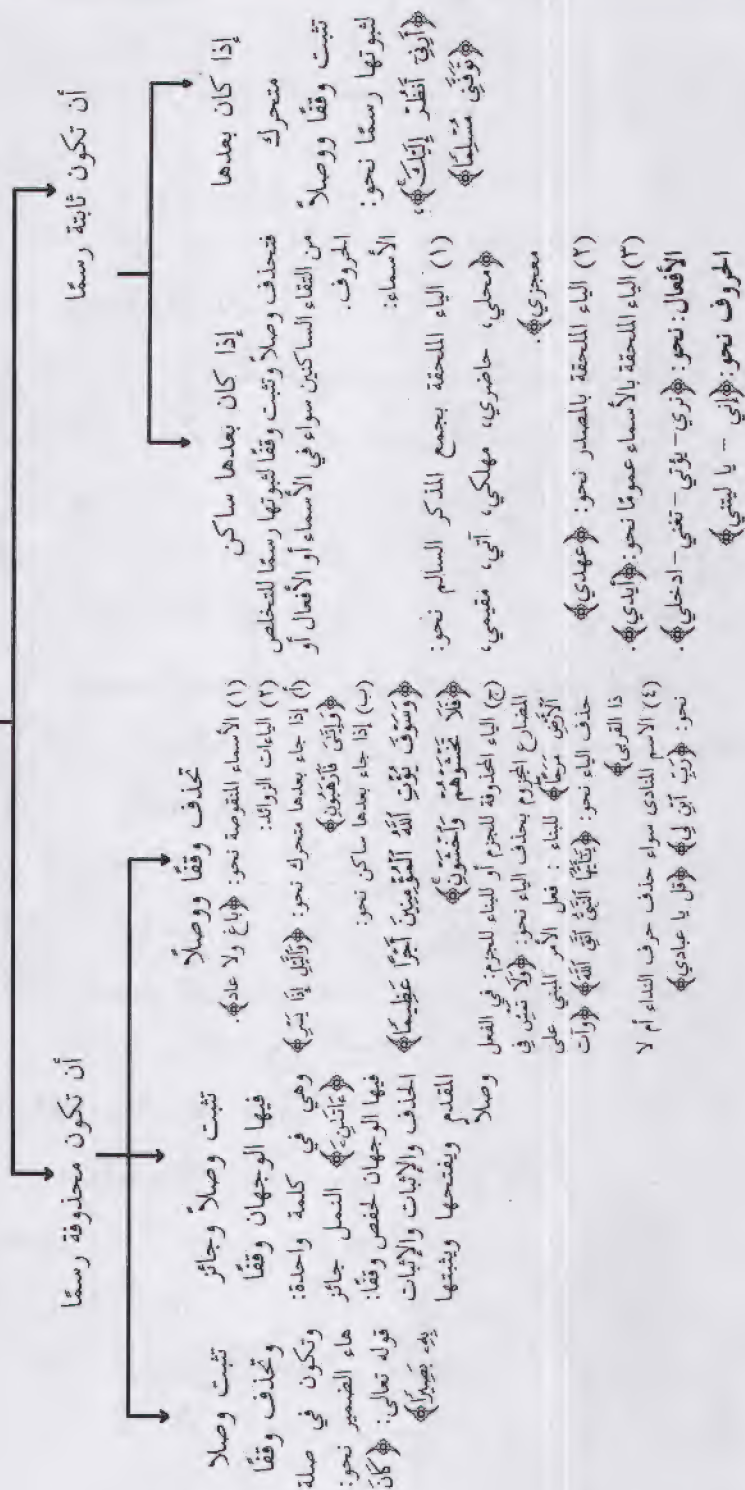 أن تكون ثابتة رسمًا
إذا كان بعدها
متحرك
تثبت وقفًا ووصلاً
لثبوتها رسمًا نحو:
﴿أَرِنِي أَنظُرْ إِلَيْكَ﴾،
﴿تَوَفَّنِي مُسْلِمًا﴾
إذا كان بعدها ساكن
فتحذف وصلاً وتثبت وقفًا لثبوتها رسمًا للتخلص
من التقاء الساكنين سواء في الأسماء أو الأفعال أو
الحروف.
الأسماء:
(١) الياء الملحقة بجمع المذكر السالم نحو:
﴿محلي، حاضري، مهلكي، آتي، مقيمي،
معجزي﴾.
(٢) الياء الملحقة بالمصدر نحو: ﴿عهدي﴾
(٣) الياء الملحقة بالأسماء عمومًا نحو: ﴿أيدي﴾.
الأفعال: نحو: ﴿نري - يؤتي - تغني - ادخلي﴾.
الحروف نحو: ﴿إني - يا ليتني﴾
أن تكون محذوفة رسمًا
تحذف وقفًا ووصلاً
(١) الأسماء المنقوصة نحو: ﴿باغ ولا عاد﴾.
(٢) الياءات الزوائد:
(أ) إذا جاء بعدها متحرك نحو: ﴿وَٱلَّيْلِ إِذَا يَسْرِ﴾
﴿وَإِيَّٰىَ فَٱرْهَبُونِ﴾
(ب) إذا جاء بعدها ساكن نحو:
﴿وَسَوْفَ يُؤْتِ ٱللَّهُ ٱلْمُؤْمِنِينَ أَجْرًا عَظِيمًا﴾
﴿فَلَا تَخْشَوْهُمْ وَٱخْشَوْنِ﴾
(ج) الياء المحذوفة للجزم أو للبناء للجزم: في الفعل
المضارع المجزوم بحذف الياء نحو: ﴿وَلَا تَمْشِ فِي
ٱلْأَرْضِ مَرَحًا﴾ للبناء : فعل الأمر المبني على
حذف الياء نحو: ﴿يَٰٓأَيُّهَا ٱلنَّبِىُّ ٱتَّقِ ٱللَّهَ﴾ ﴿وآت
ذا القربى﴾
(٤) الاسم المنادى سواء حذف حرف النداء أم لا
نحو: ﴿رَبِّ ٱبْنِ لِي﴾ ﴿قل يا عبادي﴾
تثبت وصلاً وجائز
فيها الوجهان وقفًا
وهي في كلمة واحدة:
﴿ءَاتَىٰنِۦَ﴾ النمل جائز
فيها الوجهان لحفص وقفًا:
الحذف والإثبات والإثبات
المقدم ويفتحها ويثبتها
وصلاً
تثبت وصلا
وتحذف وقفًا
وتكون في صلة
هاء الضمير نحو:
قوله تعالى: ﴿كَانَ
بِهِۦ بَصِيرًا﴾